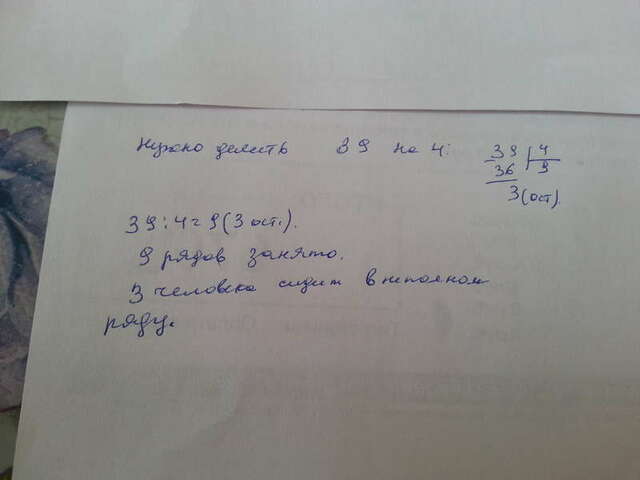 Нужно делить 39 на 4:
39 | 4
36 | 9
3 (ост).
39 : 4 = 9 (3 ост.).
9 рядов занято.
3 человека сидит в неполном
ряду.